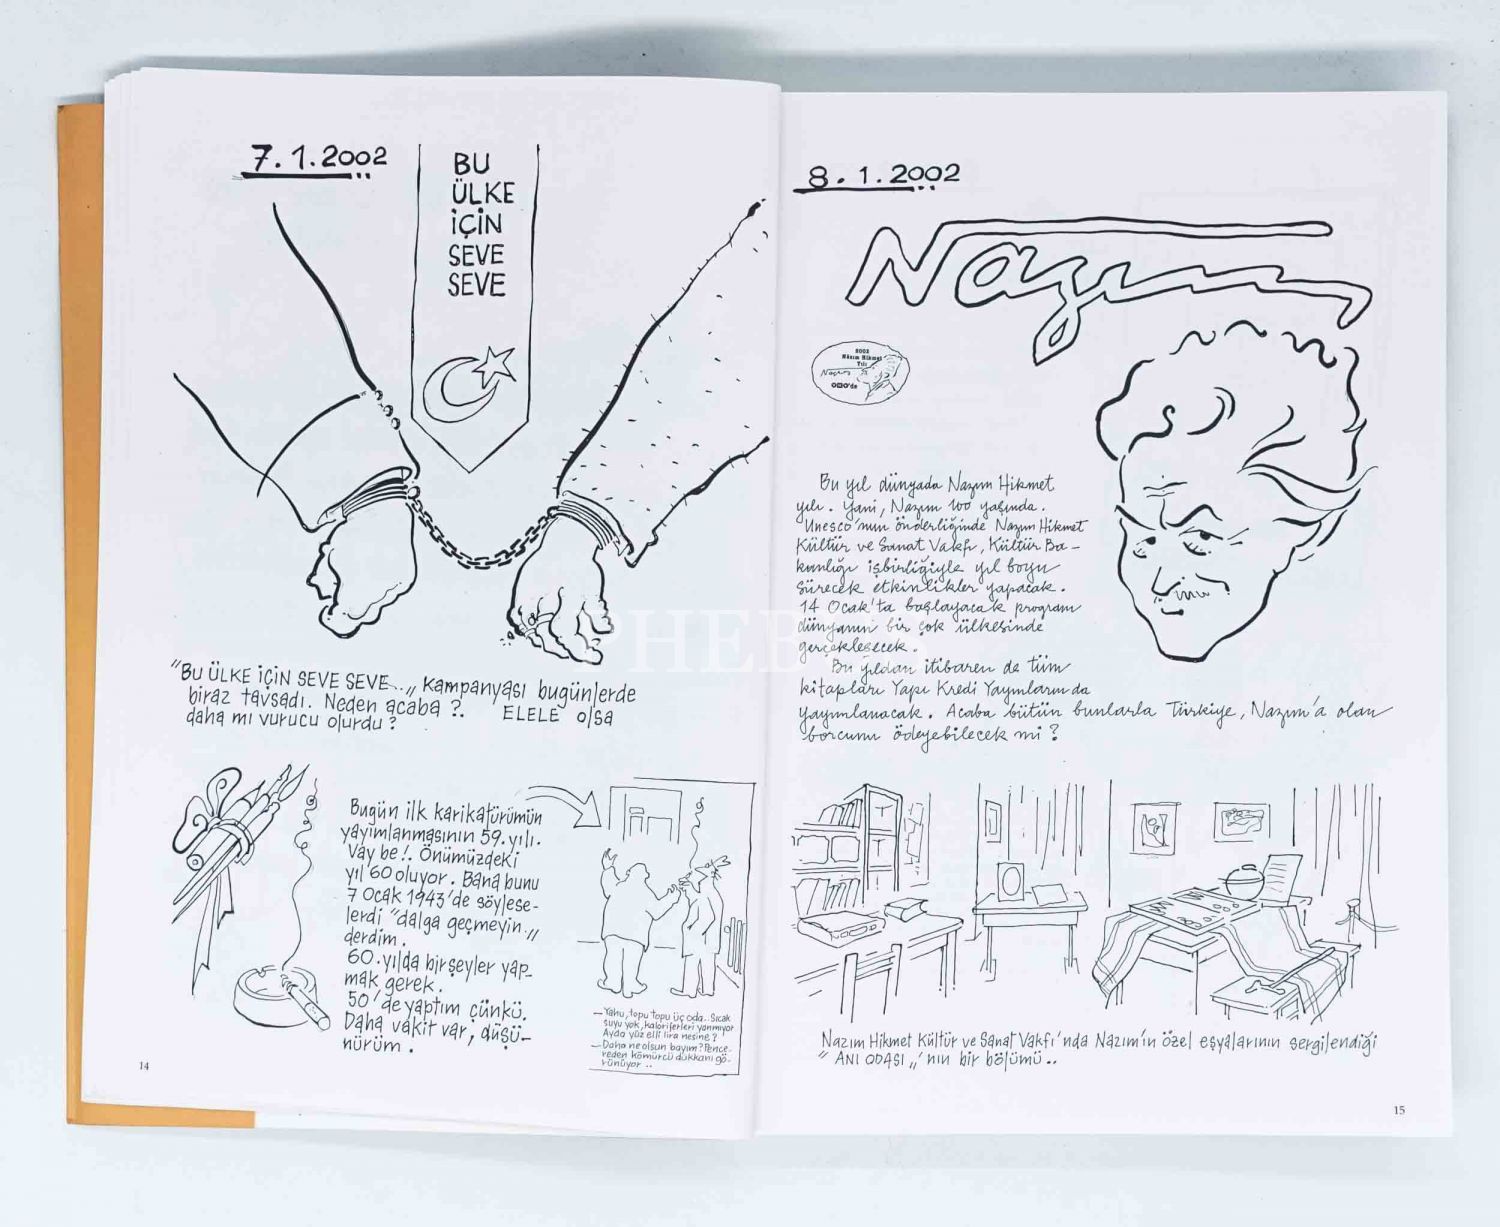 7.1.2002
BU
ÜLKE
İÇİN
SEVE
SEVE
"BU ÜLKE İÇİN SEVE SEVE..,, Kampanyası bugünlerde
biraz tavsadı. Neden acaba?. ELELE olsa
daha mı vurucu olurdu?
Bugün ilk karikatürümün
yayımlanmasının 59.yılı.
Vay be!. Önümüzdeki
yıl 60 oluyor. Bana bunu
7 Ocak 1943'de söylese-
lerdi "dalga geçmeyin,,
derdim.
60.yılda birşeyler yap-
mak gerek.
50'de yaptım çünkü.
Daha vakit var, düşü-
nürüm.
— Yahu, topu topu üç oda.. Sıcak
suyu yok, kaloriferleri yanmıyor
Ayda yüz elli lira nesine?
— Daha ne olsun bayım? Pence-
reden kömürcü dükkanı gö-
rünüyor..
14
8.1.2002
Nazım
2002
Nâzım Hikmet
Yılı
Nazım
Bu yıl dünyada Nazım Hikmet
yılı. Yani, Nazım 100 yaşında.
Unesco'nun önderliğinde Nazım Hikmet
Kültür ve Sanat Vakfı, Kültür Ba-
kanlığı işbirliğiyle yıl boyu
sürecek etkinlikler yapacak.
14 Ocak'ta başlayacak program
dünyanın bir çok ülkesinde
gerçekleşecek.
Bu yıldan itibaren de tüm
kitapları Yapı Kredi Yayınlarında
yayımlanacak. Acaba bütün bunlarla Türkiye, Nazım'a olan
borcunu ödeyebilecek mi?
Nazım Hikmet Kültür ve Sanat Vakfı'nda Nazım'ın özel eşyalarının sergilendiği
" ANI ODASI,,'nın bir bölümü..
15
PHEBUS